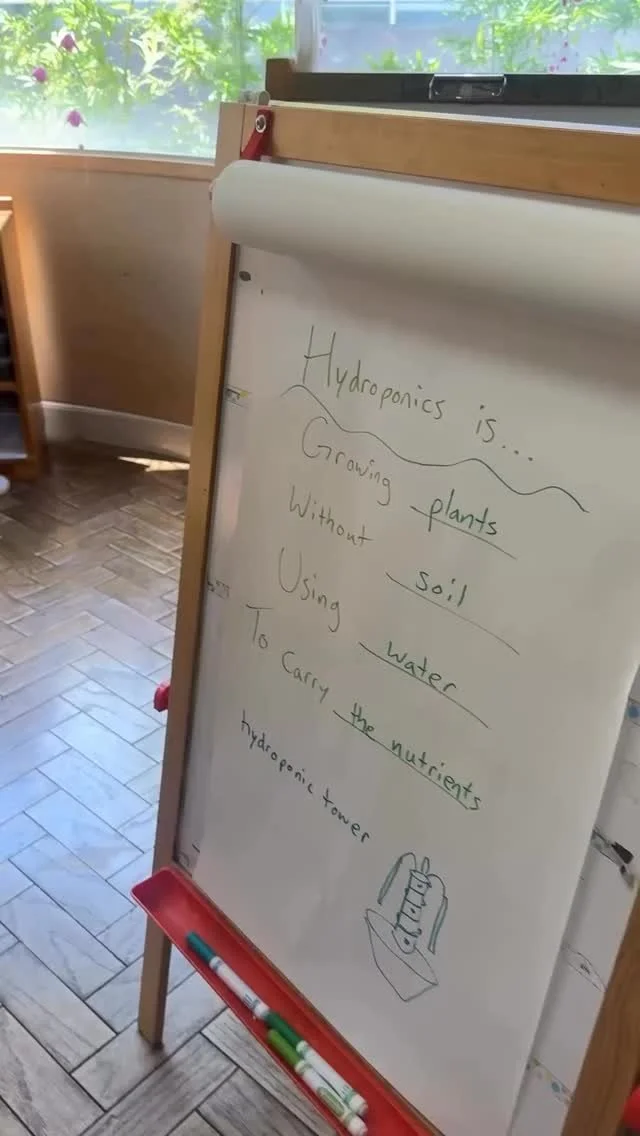 Hydroponics is...
Growing plants
Without soil
Using water
To Carry the nutrients
hydroponic tower